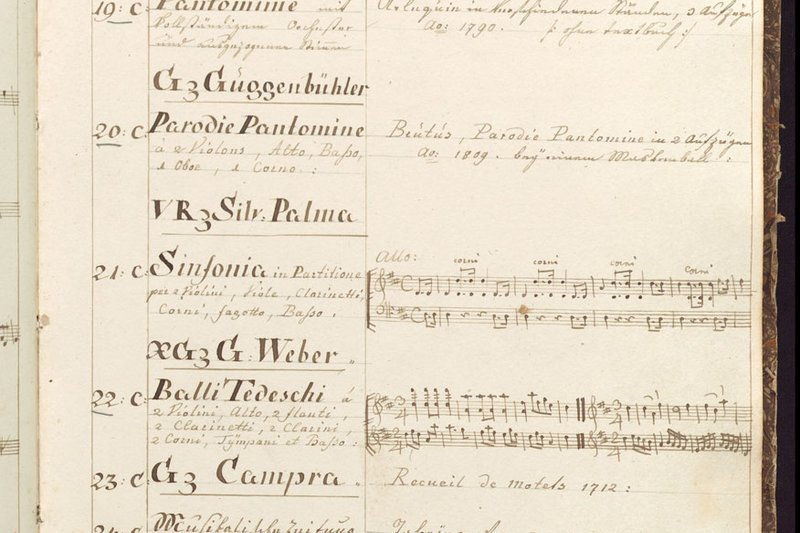 19: C. Pantomine mit
Vollständigem Orchester
und ausgezogenen Stimen
Arlequin in verschiedenen Ständen, 3 Aufzüge
Ao: 1790. /: ohne textbuch :/
G3 Guggenbühler
20: C. Parodie Pantomine
à 2 Violons, Alto, Basso,
1 Oboe, 1 Corno :
Beütüs, Parodie Pantomine in 2 Aufzügen
Ao: 1809. beÿ einem Maskenball :
VR3 Silv. Palma
21: C. Sinfonia in Partitione
per 2 Violini, Viole, Clarinetti,
Corni, fagotto, Basso.
Allo:
corni corni corni corni
XG3 G. Weber
22: C. Balli Tedeschi à
2 Violini, Alto, 2 flauti,
2 Clarinetti, 2 Clarini,
2 Corni, Tÿmpani et Basso :
23: C. G3 Campra
Recueil de motets 1712 :
24: C. Musikalische Zeitung